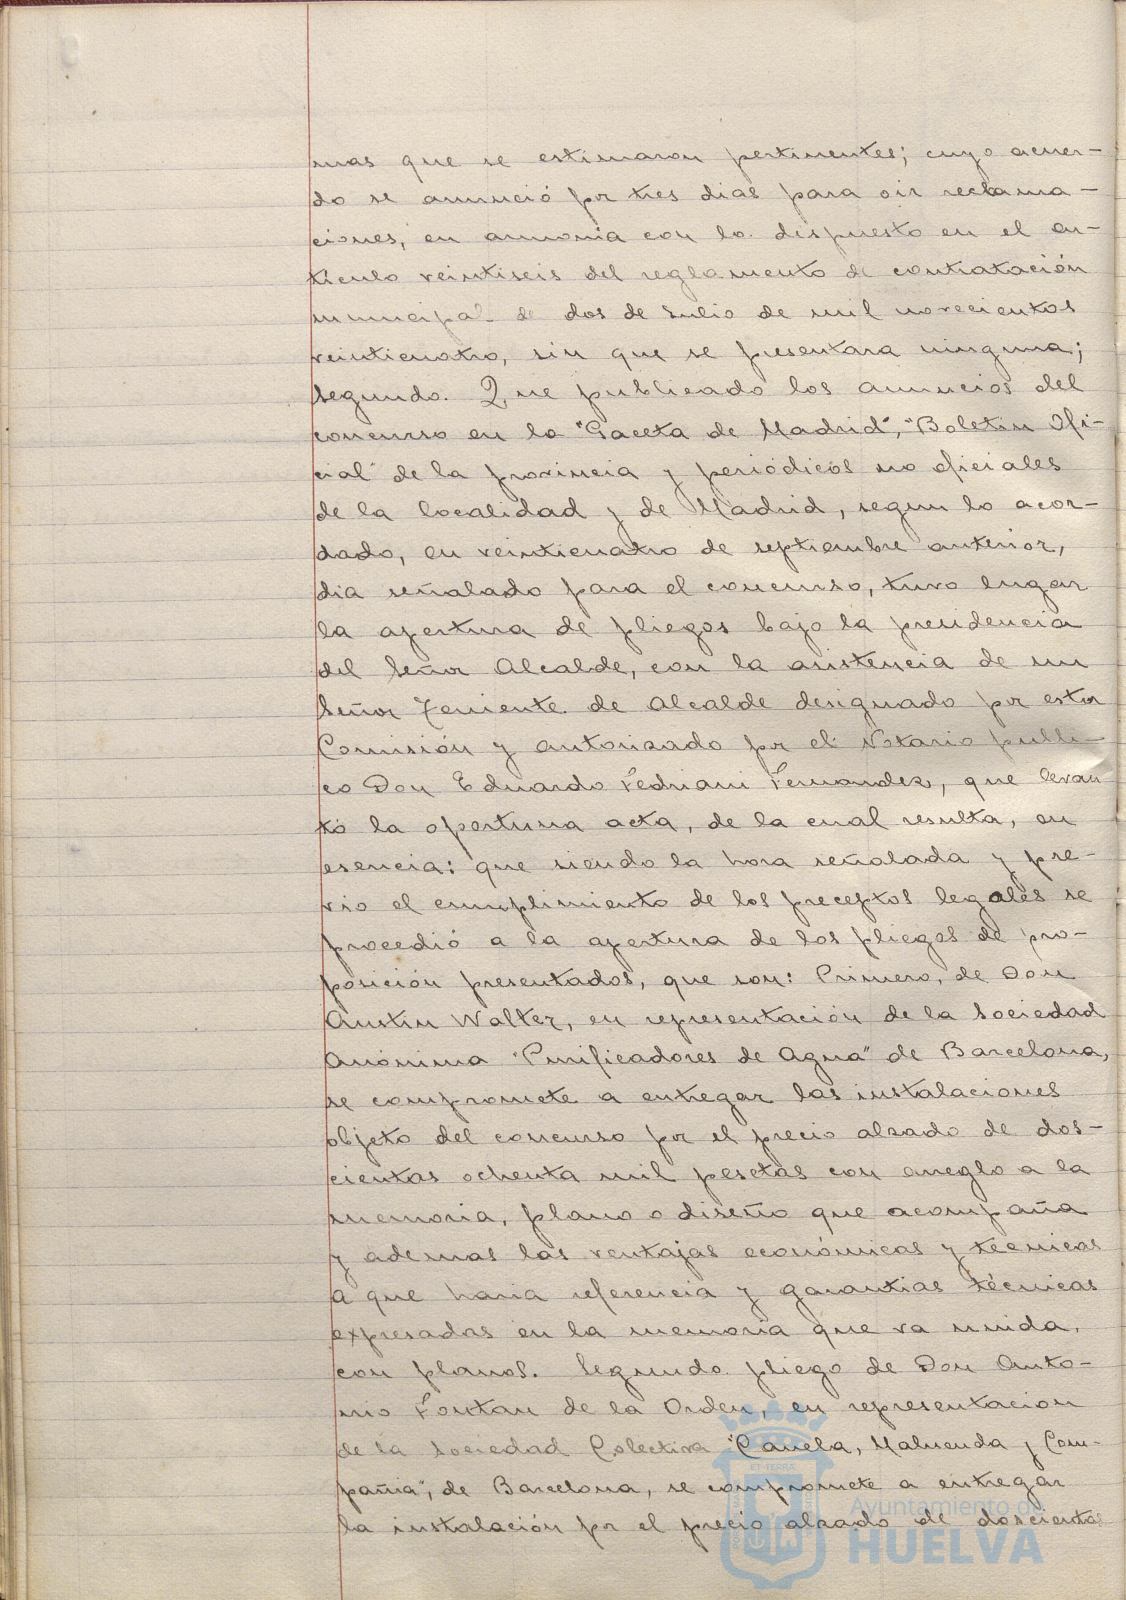 mas que se estimaron pertinentes; cuyo acuer-
do se anunció por tres dias para oir reclama-
ciones, en armonia con lo dispuesto en el ar-
ticulo veintiseis del reglamento de contratación
municipal de dos de Julio de mil novecientos
veinticuatro, sin que se presentara ninguna;
Segundo. Que publicado los anuncios del
concurso en la "Gaceta de Madrid", "Boletin Ofi-
cial" de la provincia y periódicos no oficiales
de la localidad y de Madrid, segun lo acor-
dado, en veinticuatro de septiembre anterior,
dia señalado para el concurso, tuvo lugar
la apertura de pliegos bajo la presidencia
del Señor Alcalde, con la asistencia de un
Señor Teniente de Alcalde designado por esta
Comisión y autorizado por el Notario publi-
co Don Eduardo Fedriani Fernandez, que levan
tó la oportuna acta, de la cual resulta, en
esencia: que siendo la hora señalada y pre-
vio el cumplimiento de los preceptos legales se
procedió a la apertura de los pliegos de pro-
posición presentados, que son: Primero, de Don
Austin Walter, en representación de la Sociedad
Anónima "Purificadores de Agua" de Barcelona,
se compromete a entregar las instalaciones
objeto del concurso por el precio alzado de dos-
cientas ochenta mil pesetas con arreglo a la
memoria, plano o diseño que acompaña
y ademas las ventajas económicas y técnicas
a que haria referencia y garantias técnicas
expresadas en la memoria que va unida,
con planos. Segundo pliego de Don Anto-
nio Fontan de la Orden, en representacion
de la Sociedad Colectiva "Canela, Maluenda y Com-
pañia", de Barcelona, se compromete a entregar
la instalación por el precio alzado de doscientas
ET TERRA
Ayuntamiento de
HUELVA